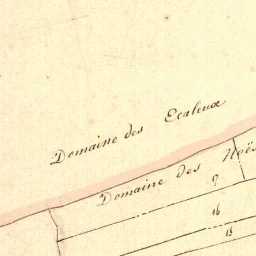 Domaine des Ecaleux
Domaine des Noës
9
16
15